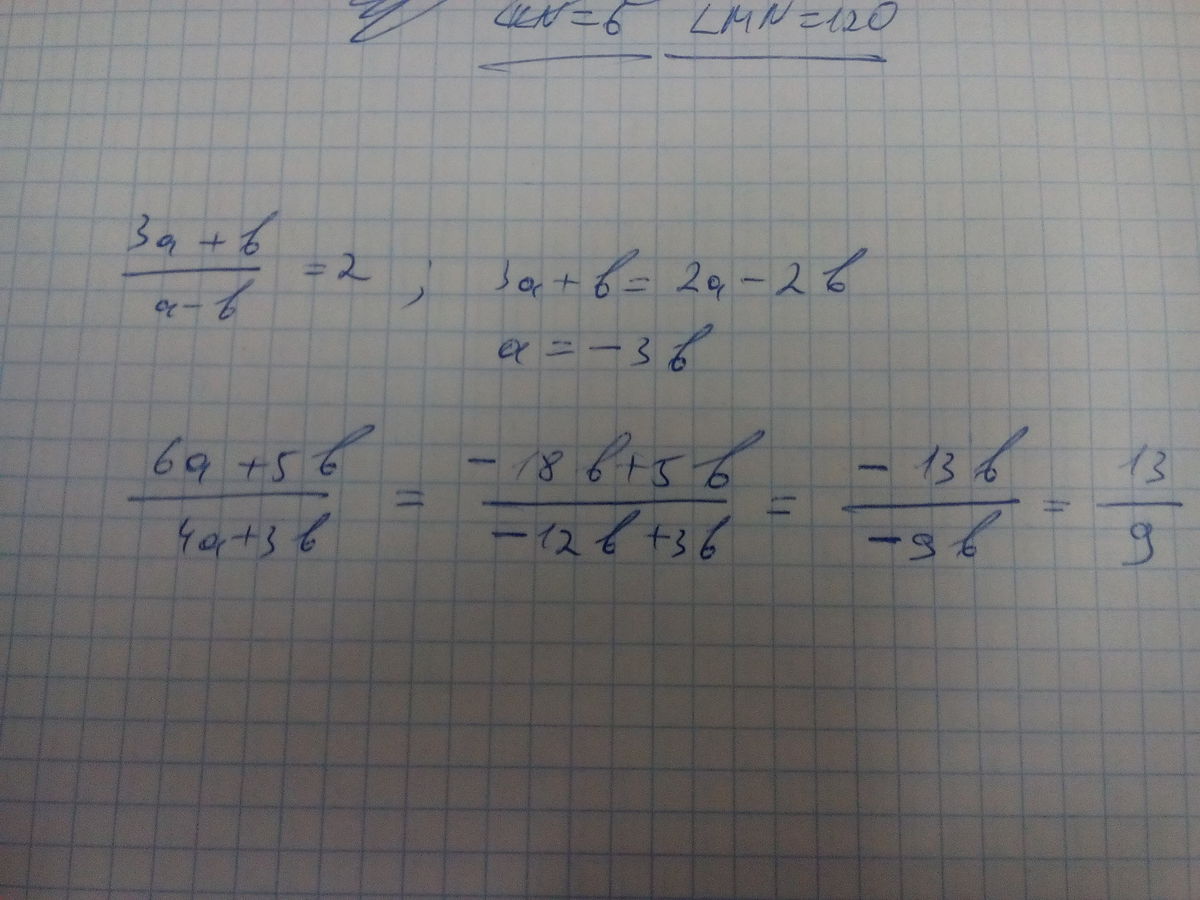 ∠KN=5 ∠MN=120
(3a+b)/(a-b) =2 ; 3a+b=2a-2b
a=-3b
(6a+5b)/(4a+3b) = (-18b+5b)/(-12b+3b) = (-13b)/(-9b) = 13/9